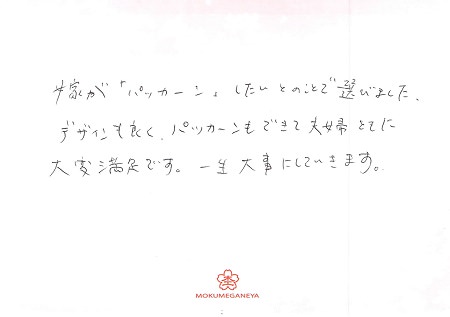 嫁が「パッカーン」したいとのことで選びました。
デザインも良く、パッカーンもできて夫婦ともに
大変満足です。一生大事にしていきます。
MOKUMEGANEYA